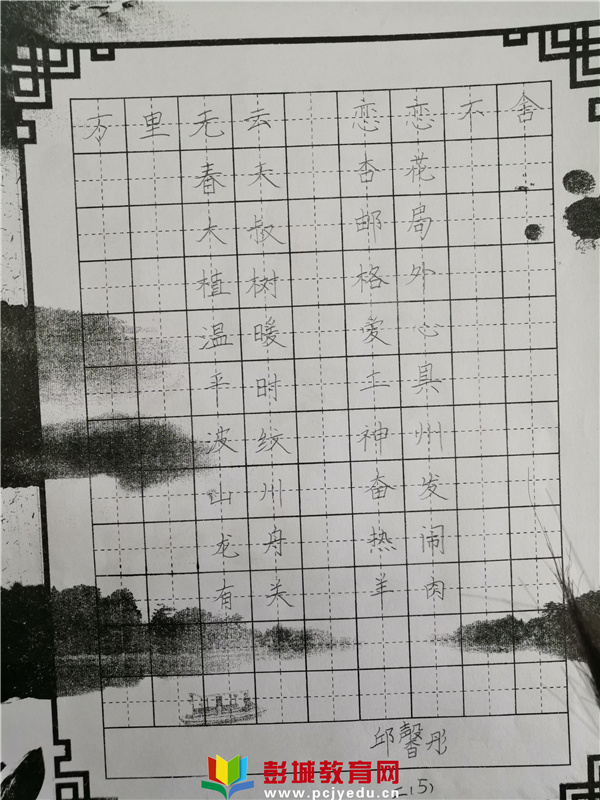 万里无云 恋恋不舍
春天 杏花
大叔 邮局
植树 格外
温暖 爱心
平时 工具
波纹 神州
山川 奋发
龙舟 热闹
有关 羊肉
邱馨彤
彭城教育网
www.pcjyedu.cn
二(5)